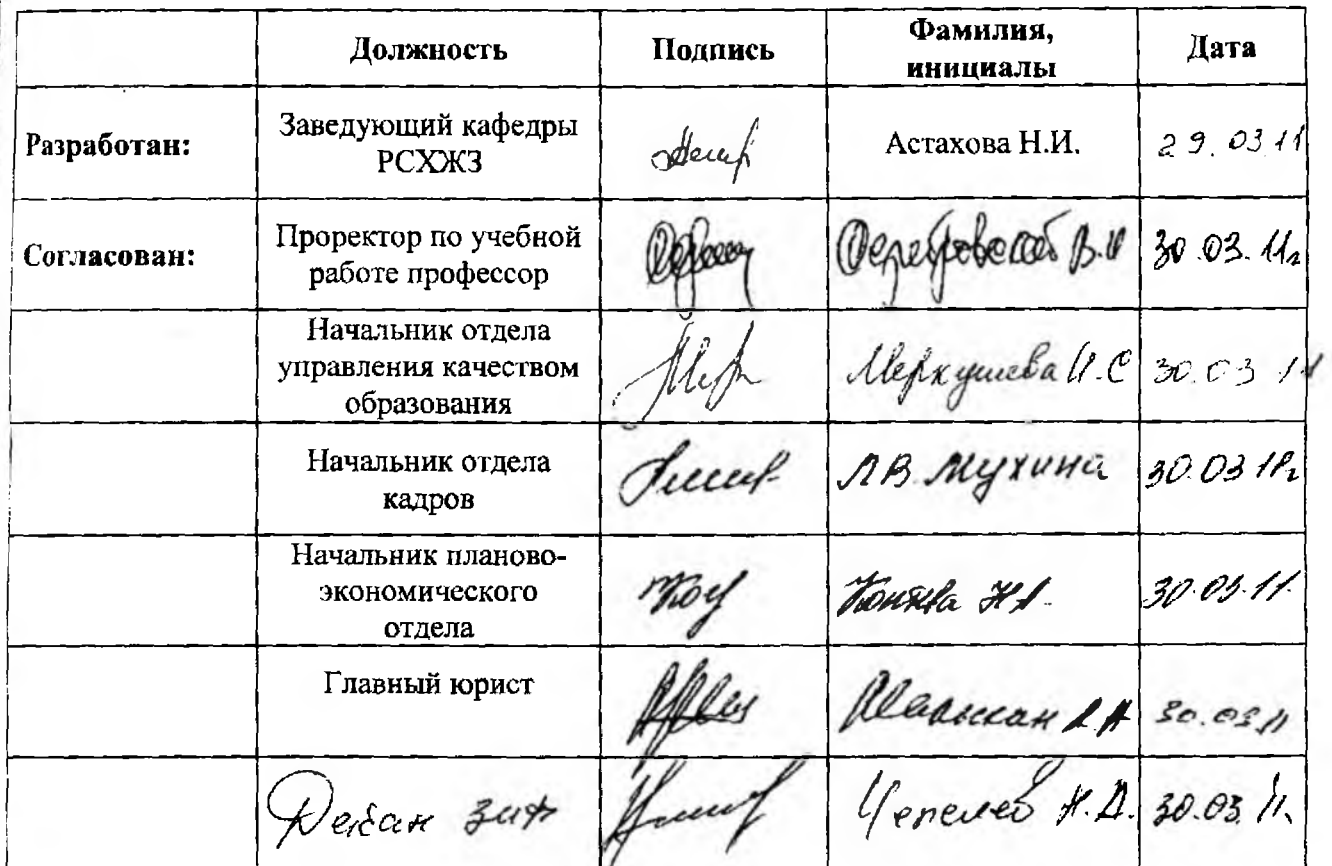 Должность Подпись Фамилия, инициалы Дата
Разработан: Заведующий кафедры РСХЖЗ Астахова Н.И. 29.03 11
Согласован: Проректор по учебной работе профессор 30.03.11г
Начальник отдела управления качеством образования Меркушева И.С 30.03 11
Начальник отдела кадров Л.В. Мухина 30.03 11г
Начальник планово-экономического отдела 30.03.11.
Главный юрист 30.03.11
Декан ЗИФ Чепелев Н.И. 30.03.11.